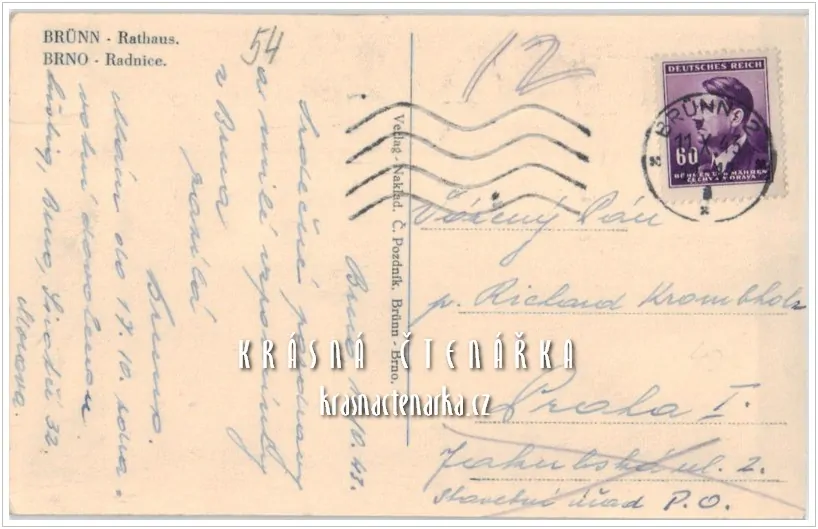 BRÜNN - Rathaus.
BRNO - Radnice.
54
12
DEUTSCHES REICH
60
BÖHMEN UND MÄHREN
ČECHY A MORAVA
BRÜNN 2
11. X.
Verlag - Naklad. Č. Pozdník. Brünn - Brno.
Brno 10. 43.
Srdečné pozdravy
a milé vzpomínky
z Brna
posílá
Mám do 17. 10.
Brno, 32.
Morava.
Vážený Pán
p. Richard Krombholz
Praha I.
Jakubská ul. 2.
stavební úřad P.O.
KRÁSNÁ ČTENÁŘKA
krasnactenarka.cz